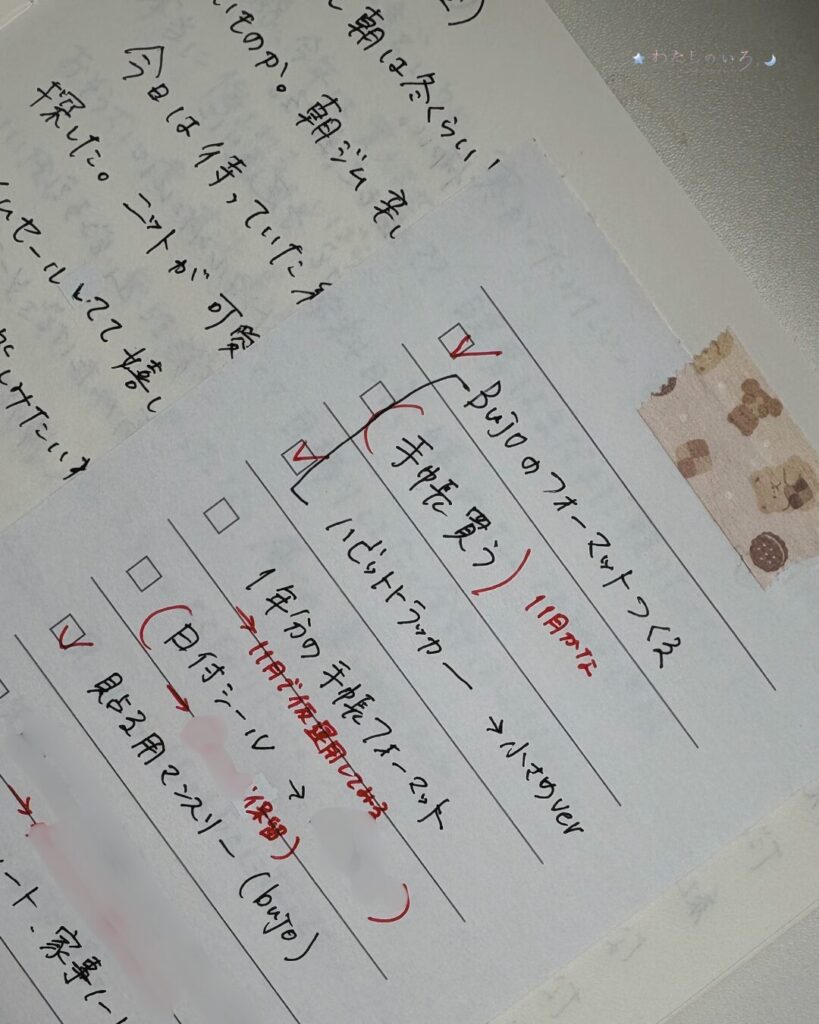 わたしのいろ
朝は冬くらい
いものか。朝ジム楽し
今日は待っていた
探した。ニットが可愛
セールしてて嬉し
みたい
Bujoのフォーマットつくる
(手帳買う) 11月かな
ハビットトラッカー → 小さめver
1年分の手帳フォーマット
→ 11月で仮運用してみる
(日付シール →
→ 保留)
)
貼る用マンスリー (bujo)
→
ート、家事ルー